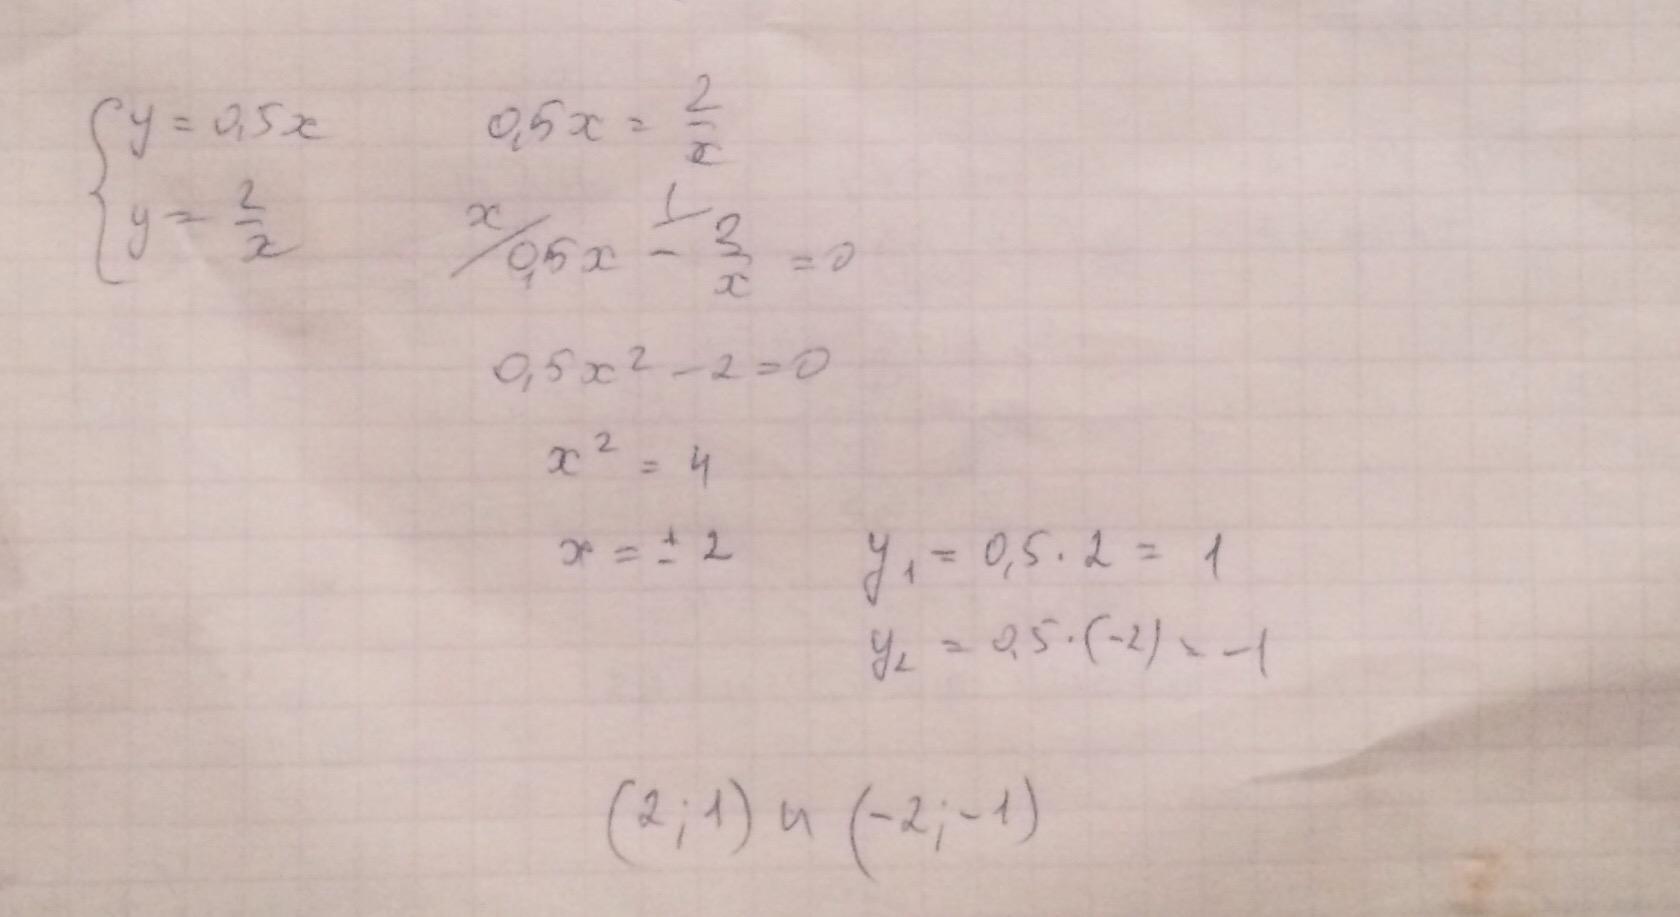 { y = 0,5x
y = 2/x
0,5x = 2/x
x/ 0,5x - 1/ 2/x = 0
0,5x² - 2 = 0
x² = 4
x = ± 2
y₁ = 0,5 · 2 = 1
y₂ = 0,5 · (-2) = -1
(2; 1) и (-2; -1)